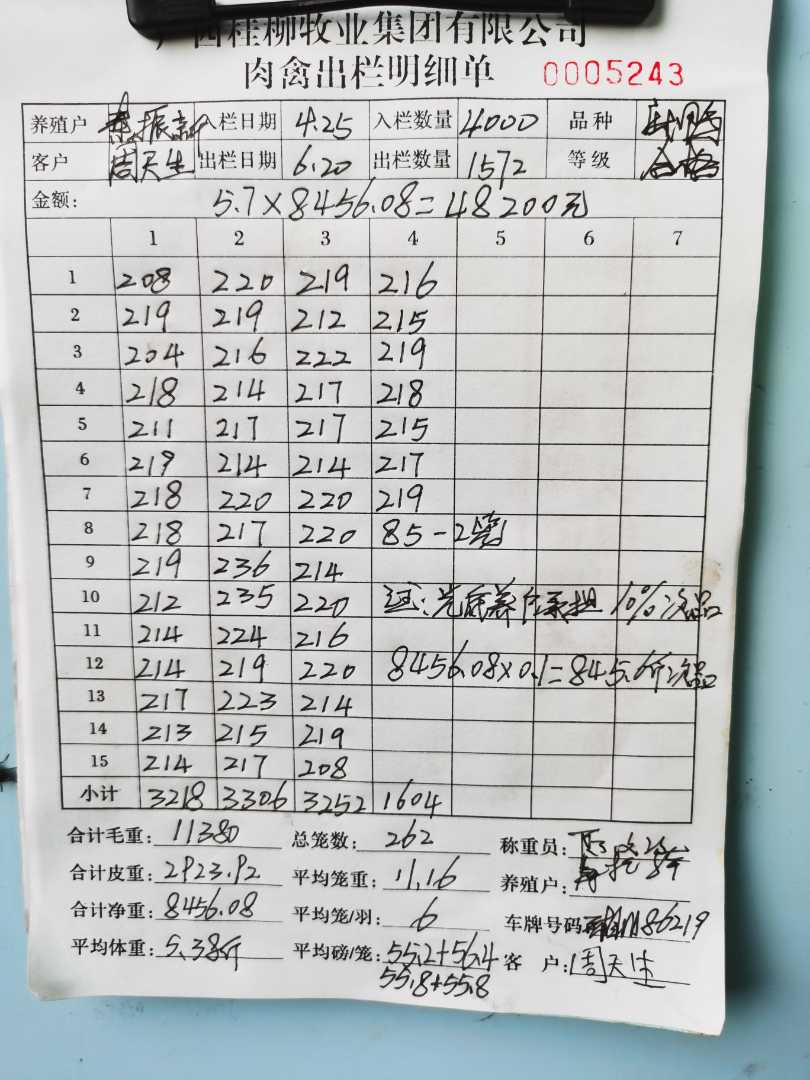 广西桂柳牧业集团有限公司
肉禽出栏明细单 0005243
养殖户 振 入栏日期 4.25 入栏数量 4000 品种
客户 周天生 出栏日期 6.20 出栏数量 1572 等级 合格
金额: 5.7×8456.08=48200元
1 2 3 4 5 6 7
1 208 220 219 216
2 219 219 212 215
3 204 216 222 219
4 218 214 217 218
5 211 217 217 215
6 219 214 214 217
7 218 220 220 219
8 218 217 220 85-2
9 219 236 214
10 212 235 220 承担10%次品
11 214 224 216
12 214 219 220 8456.08×0.1=845.6斤次品
13 217 223 214
14 213 215 219
15 214 217 208
小计 3218 3306 3252 1604
合计毛重: 11380 总笼数: 262 称重员:
合计皮重: 2923.92 平均笼重: 11.16 养殖户:
合计净重: 8456.08 平均笼/羽: 6 车牌号码 86219
平均体重: 5.38斤 平均磅/笼: 55.2+56.4 客户: 周天生
55.8+55.8